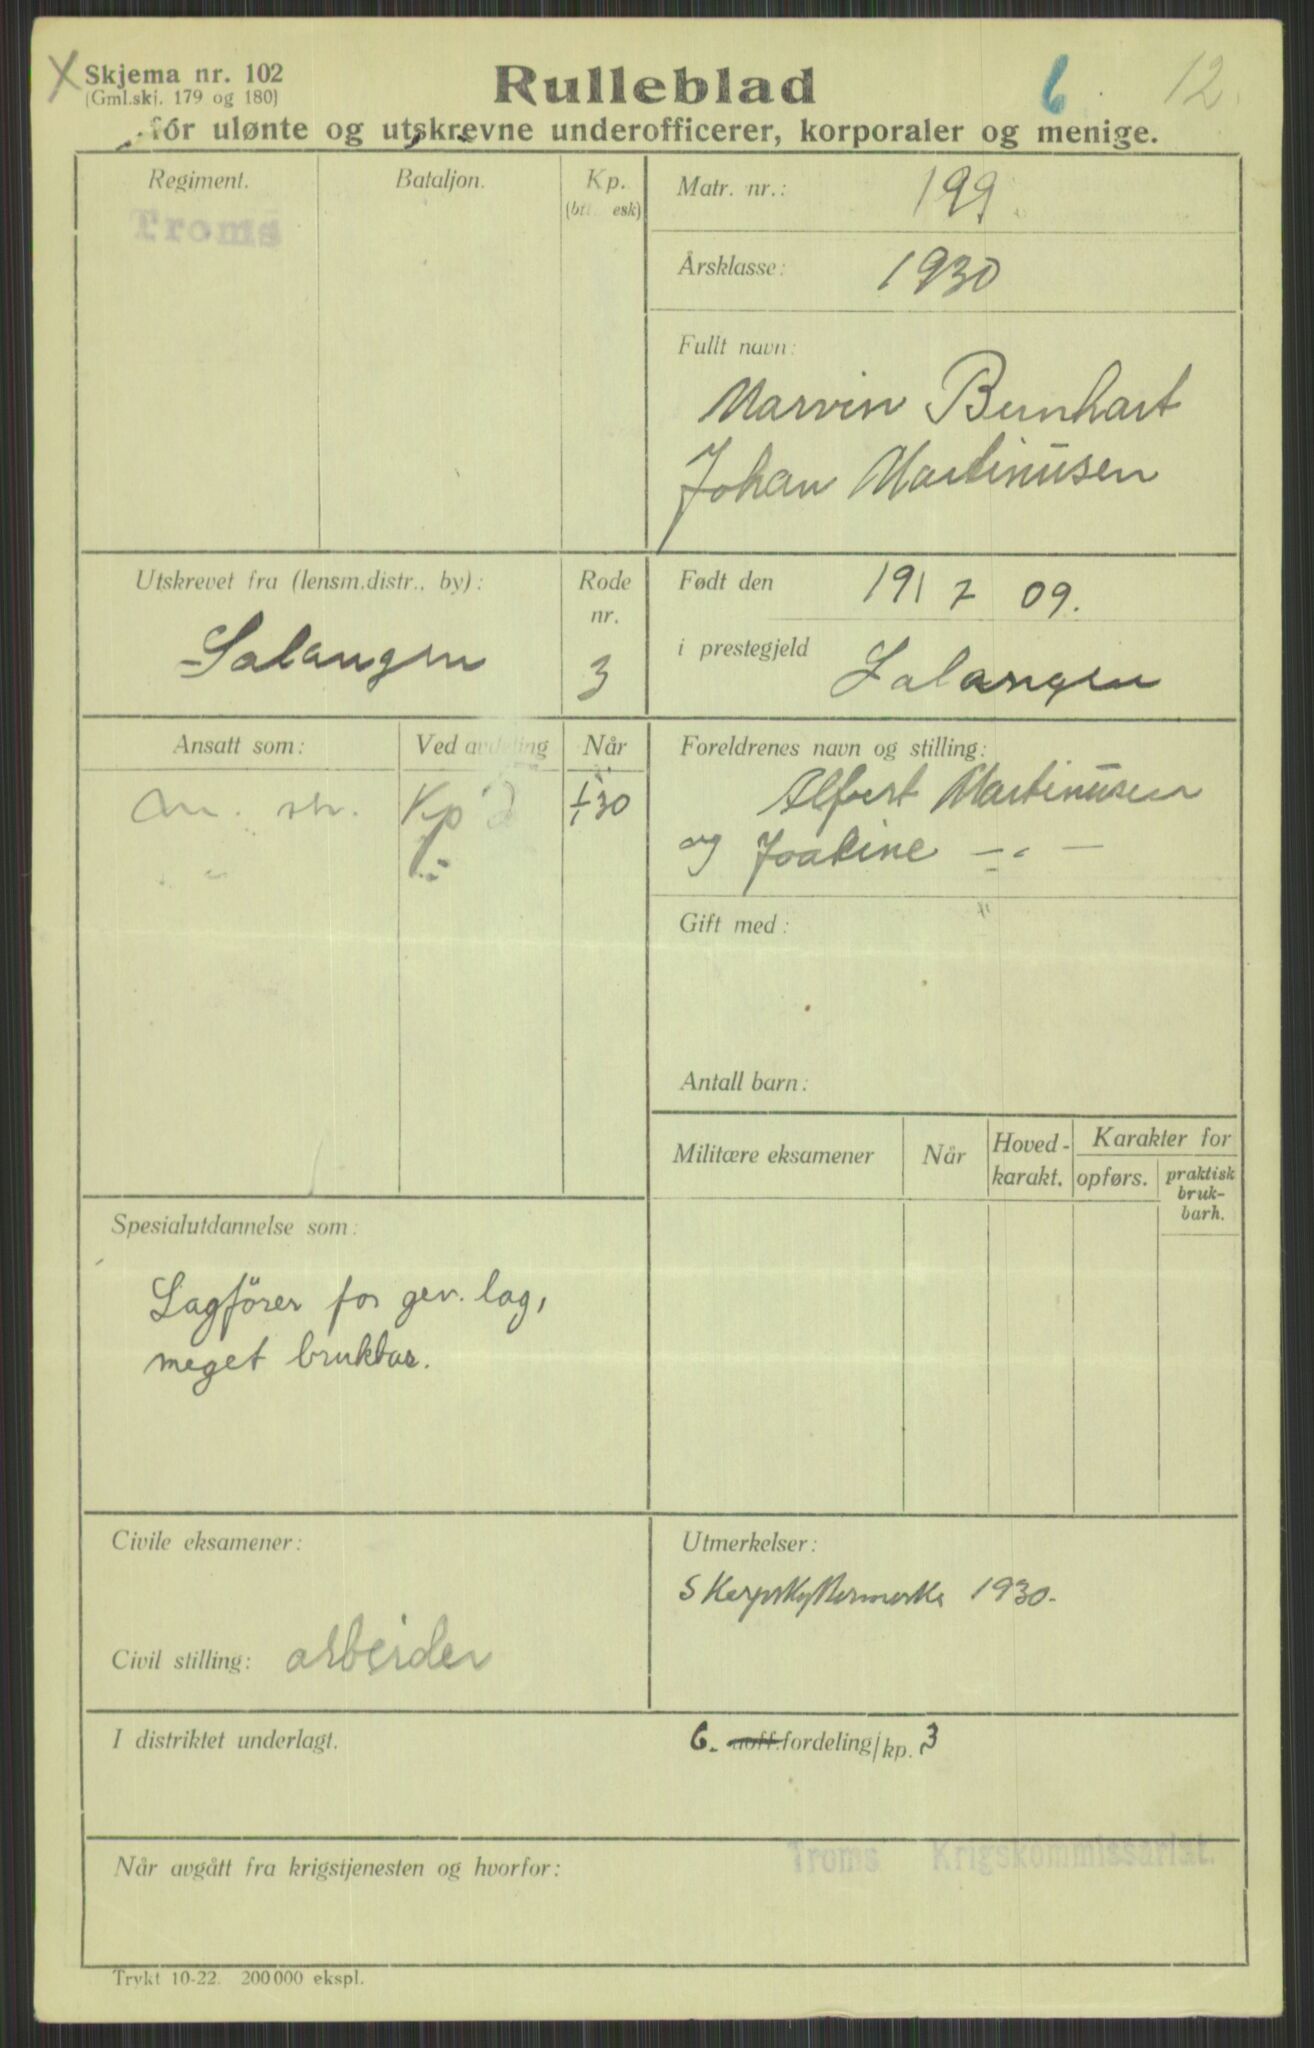 Skjema nr. 102
(Gml.skj. 179 og 180)
Rulleblad
6.
12.
for ulønte og utskrevne underofficerer, korporaler og menige.
Regiment.
Bataljon.
Kp.
(btt. esk)
Troms
Matr. nr.: 199.
Årsklasse: 1930
Fullt navn:
Marvin Bernhart
Johan Martinusen
Utskrevet fra (lensm.distr., by):
Salangen
Rode
nr.
3
Født den 19/7 09.
i prestegjeld Salangen
Ansatt som:
Ved avdeling
Når
Kp
30
Foreldrenes navn og stilling:
Alfert Martinusen
og Joakine — " —
Gift med:
Antall barn:
Militære eksamener
Når
Hoved-
karakt.
Karakter for
opførs.
praktisk
bruk-
barh.
Spesialutdannelse som:
Lagförer for gev. lag,
meget brukbar.
Civile eksamener:
Civil stilling: arbeider
Utmerkelser:
Skarpskyttermerke 1930.
I distriktet underlagt.
6. aoff.fordeling/kp. 3
Når avgått fra krigstjenesten og hvorfor:
Troms Krigskommissariat.
Trykt 10-22. 200 000 ekspl.